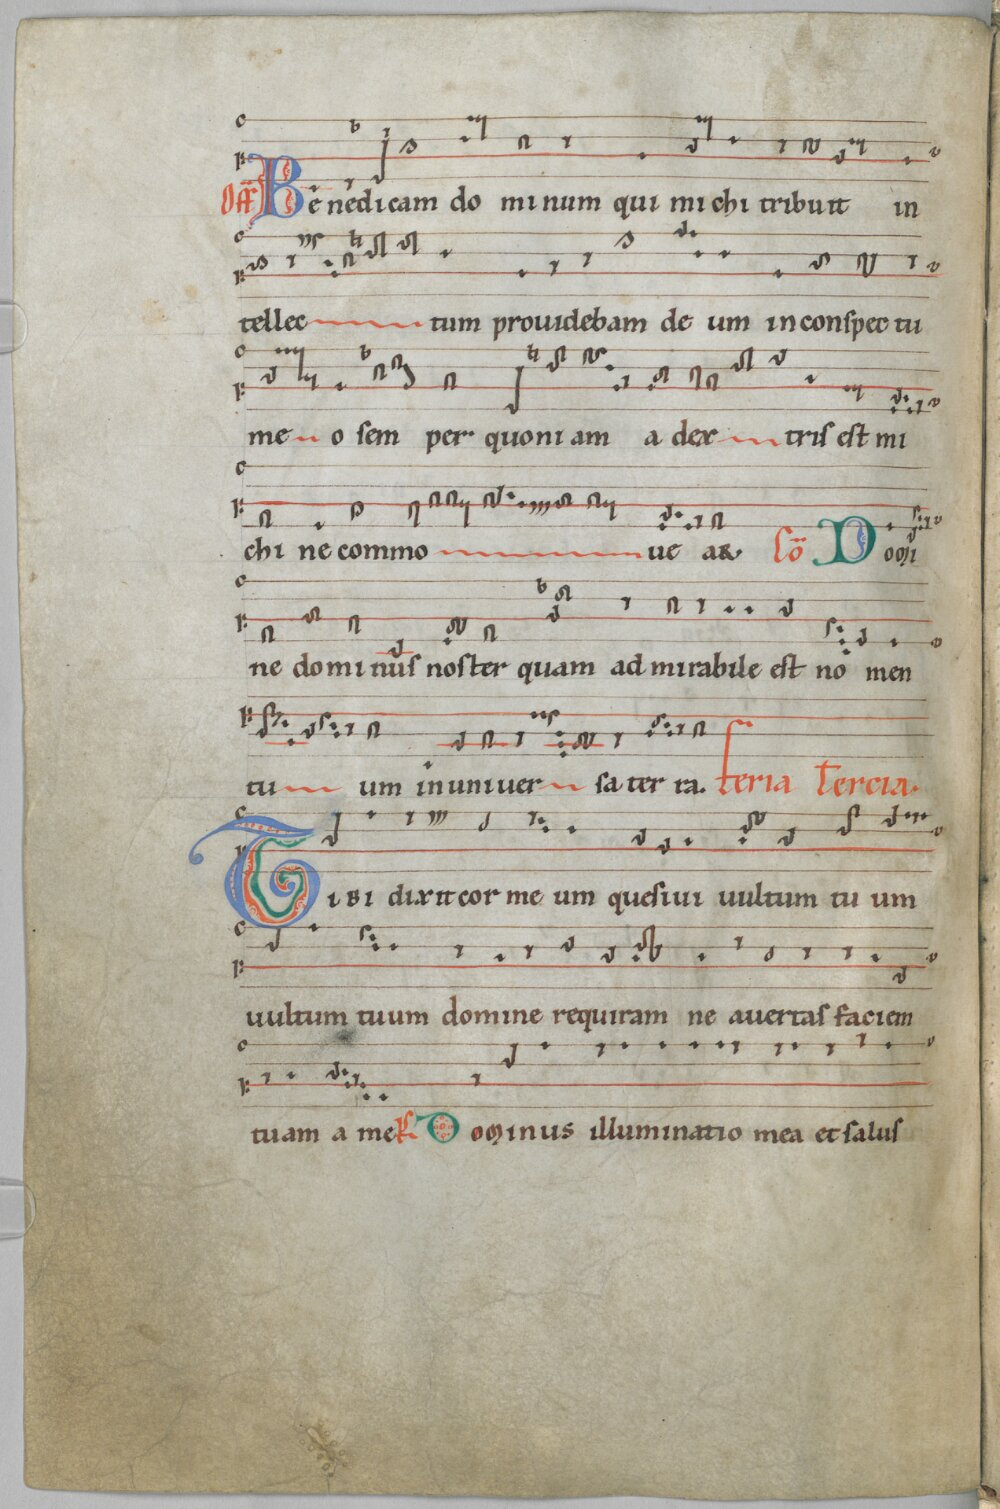 Off Benedicam dominum qui michi tribuit in
tellec tum prouidebam deum inconspectu
meo semper quoniam a dextris est mi
chi necommouear. Co Domi
ne dominus noster quam admirabile est nomen
tuum inuniuersa terra. feria Tercia.
Tibi dixit cor meum quesiui uultum tuum
uultum tuum domine requiram ne auertas faciem
tuam a me Ps Dominus illuminatio mea et salus